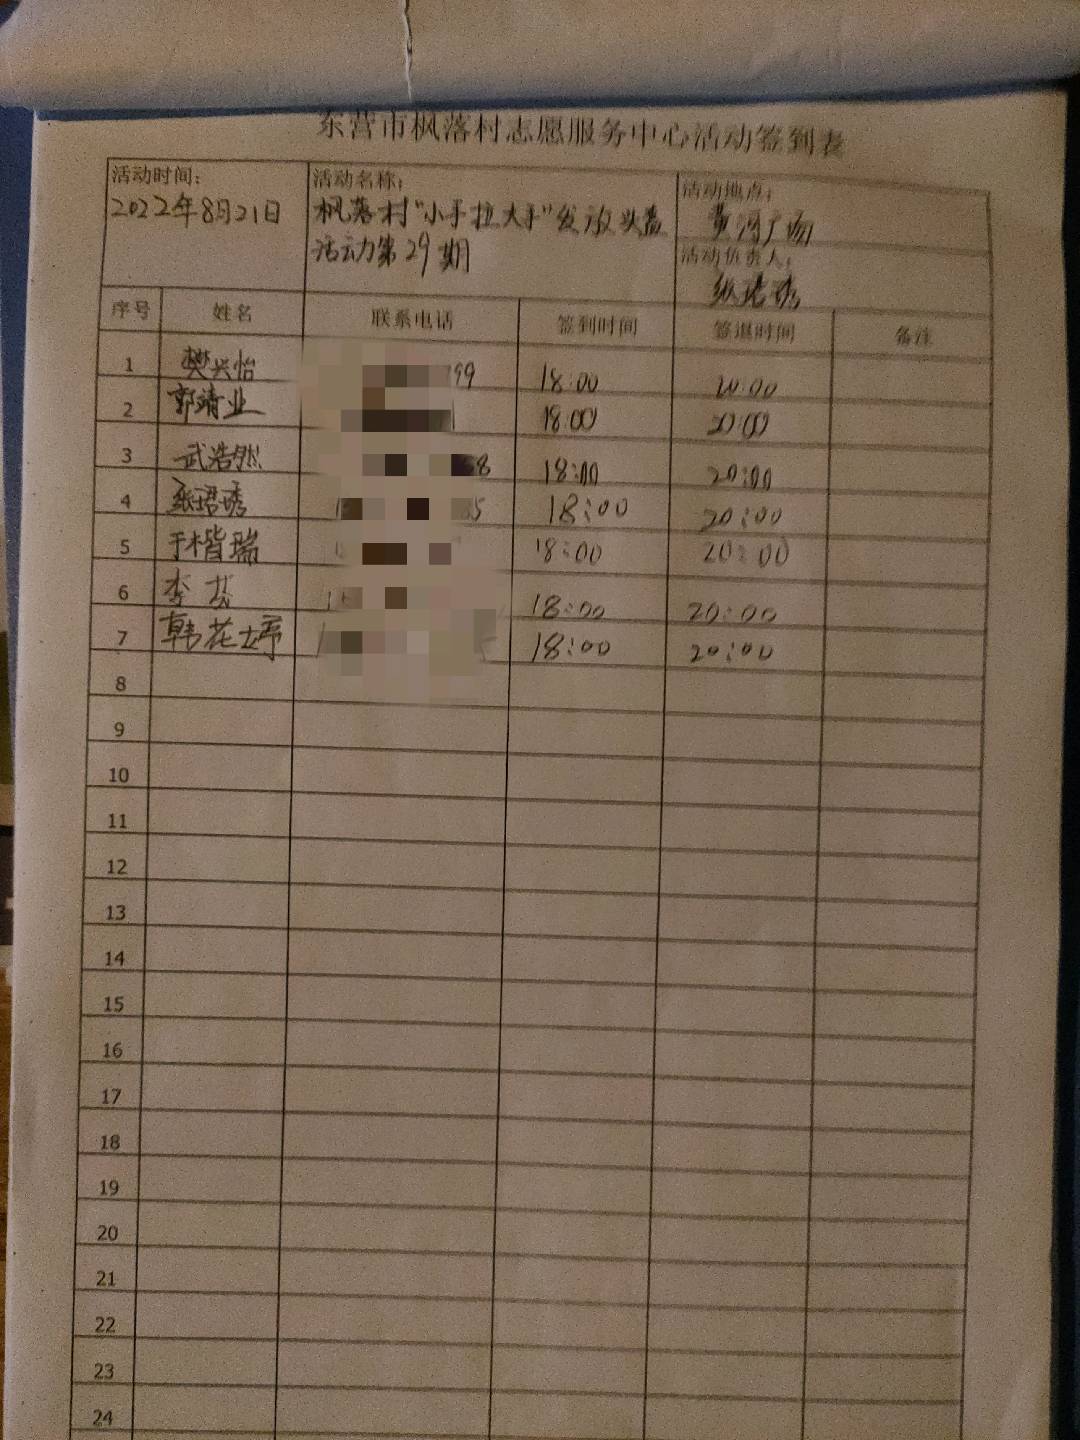 东营市枫落村志愿服务中心活动签到表
活动时间: 活动名称: 活动地点:
2022年8月21日 枫落村"小手拉大手"发放头盔 黄河广场
活动第29期 活动负责人:
张珺琇
序号 姓名 联系电话 签到时间 签退时间 备注
1 樊兴怡 99 18:00 20:00
2 郭靖业 18:00 20:00
3 武浩然 18:00 20:00
4 张珺琇 18:00 20:00
5 于楷瑞 18:00 20:00
6 李 18:00 20:00
7 韩花婷 18:00 20:00
8
9
10
11
12
13
14
15
16
17
18
19
20
21
22
23
24